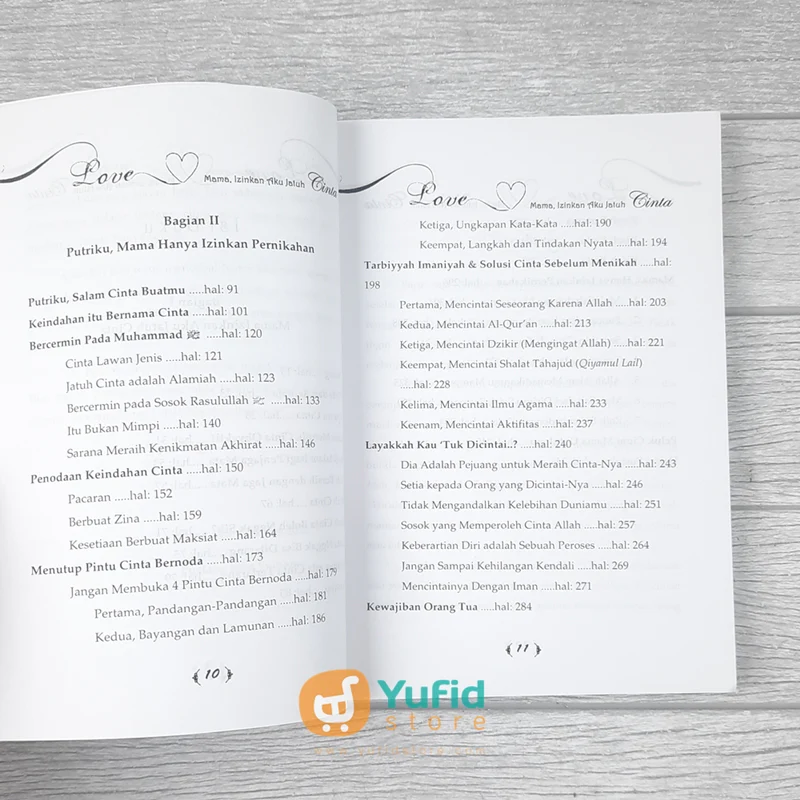 Love Mama, Izinkan Aku Jatuh Cinta
Bagian II
Putriku, Mama Hanya Izinkan Pernikahan
Putriku, Salam Cinta Buatmu .....hal: 91
Keindahan itu Bernama Cinta .....hal: 101
Bercermin Pada Muhammad ﷺ .....hal: 120
Cinta Lawan Jenis .....hal: 121
Jatuh Cinta adalah Alamiah .....hal: 123
Bercermin pada Sosok Rasulullah ﷺ .....hal: 133
Itu Bukan Mimpi .....hal: 140
Sarana Meraih Kenikmatan Akhirat .....hal: 146
Penodaan Keindahan Cinta .....hal: 150
Pacaran .....hal: 152
Berbuat Zina .....hal: 159
Kesetiaan Berbuat Maksiat .....hal: 164
Menutup Pintu Cinta Bernoda .....hal: 173
Jangan Membuka 4 Pintu Cinta Bernoda .....hal: 179
Pertama, Pandangan-Pandangan .....hal: 181
Kedua, Bayangan dan Lamunan .....hal: 186
10
Love Mama, Izinkan Aku Jatuh Cinta
Ketiga, Ungkapan Kata-Kata .....hal: 190
Keempat, Langkah dan Tindakan Nyata .....hal: 194
Tarbiyyah Imaniyah & Solusi Cinta Sebelum Menikah .....hal:
198
Pertama, Mencintai Seseorang Karena Allah .....hal: 203
Kedua, Mencintai Al-Qur'an .....hal: 213
Ketiga, Mencintai Dzikir (Mengingat Allah) .....hal: 221
Keempat, Mencintai Shalat Tahajud (Qiyamul Lail)
.....hal: 228
Kelima, Mencintai Ilmu Agama .....hal: 233
Keenam, Mencintai Aktifitas .....hal: 237
Layakkah Kau 'Tuk Dicintai..? .....hal: 240
Dia Adalah Pejuang untuk Meraih Cinta-Nya .....hal: 243
Setia kepada Orang yang Dicintai-Nya .....hal: 246
Tidak Mengandalkan Kelebihan Duniamu .....hal: 251
Sosok yang Memperoleh Cinta Allah .....hal: 257
Keberartian Diri adalah Sebuah Peroses .....hal: 264
Jangan Sampai Kehilangan Kendali .....hal: 269
Mencintainya Dengan Iman .....hal: 271
Kewajiban Orang Tua .....hal: 284
11
Yufid
store